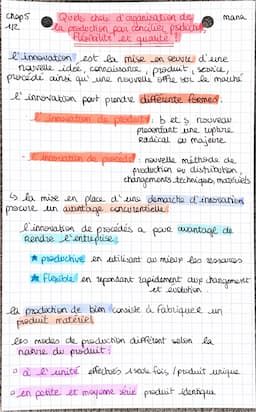 chap 5
1/2
Quels choix d'organisation de
la production pour concilier
flexibilité et qualité ?
mana
L'innovation est la mise en oeuvre d'une
nouvelle idée, connaissance, produit, service,
procédé ainsi qu'une nouvelle offre sur le marché
L'innovation peut prendre différente formes :
- l'innovation de produits : b et s nouveau
présentant une rupture
radical ou majeure
- innovation de procédé : nouvelle méthode de
production ou distribution
changements techniques, matériels
↳ la mise en place d'une demarche d'innovation
procure un avantage concurrentielle
L'innovation de procédés a pour avantage de
rendre l'entreprise
★ productive en utilisant au mieux les ressources
★ flexible en repondant rapidement aux changement
et évolution
La production de bien consiste à fabriquer un
produit matériel
Les modes de production diffèrent selon la
nature du produit :
à l'unité effectués 1 seule fois / produit unique
en petite et moyenne série produit identique